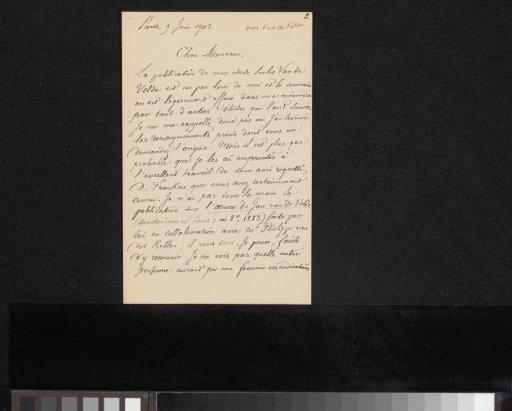 5.
Paris, 9 Juin 1903 Van de Velde
Cher Monsieur,
La publication de mon étude sur les Van de
Velde est un peu loin de moi et le souvenir
en est légèrement effacé dans ma mémoire
par tant d'autres études qui l'ont suivie.
Je ne me rappelle donc pas où j'ai trouvé
les renseignements précis dont vous me
demandez l'origine. Mais il est plus que
probable que je les ai empruntés à
l'excellent travail de mon ami regretté,
D. Franken que vous avez certainement
connu. Je n'ai pas sous la main sa
publication sur l'œuvre de Jan van de Velde
(Amsterdam et Paris; in 8º. 1883) faite par
lui en collaboration avec Mr Philipp van
der Kellen; il vous sera, je pense, facile
d'y recourir. Je ne vois pas quelle autre
personne aurait pu me fournir ces indications